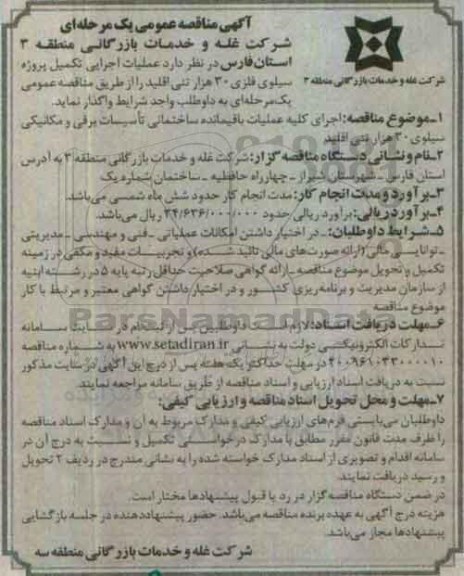 آگهی مناقصه عمومی یک مرحله‌ای
شرکت غله و خدمات بازرگانی منطقه ۳
استان فارس در نظر دارد عملیات اجرایی تکمیل پروژه
سیلوی فلزی ۳۰ هزار تنی اقلید را از طریق مناقصه عمومی
یک مرحله‌ای به داوطلب واجد شرایط واگذار نماید.
شرکت غله و خدمات بازرگانی منطقه ۳
۱ـ موضوع مناقصه: اجرای کلیه عملیات باقیمانده ساختمانی تأسیسات برقی و مکانیکی
سیلوی ۳۰ هزار تنی اقلید
۲ـ نام و نشانی دستگاه مناقصه گزار: شرکت غله و خدمات بازرگانی منطقه ۳ به آدرس
استان فارس ـ شهرستان شیراز ـ چهارراه حافظیه ـ ساختمان شماره یک
۳ـ برآورد و مدت انجام کار: مدت انجام کار حدود شش ماه شمسی می‌باشد.
۴ـ برآورد ریالی: برآورد ریالی حدود ۳۴/۶۳۶/۰۰۰/۰۰۰ ریال می‌باشد.
۵ـ شرایط داوطلبان: ـ در اختیار داشتن امکانات عملیاتی ـ فنی و مهندسی ـ مدیریتی
ـ توانایی مالی (ارائه صورت‌های مالی تائید شده) و تجربیات مفید و مکفی در زمینه
تکمیل و تحویل موضوع مناقصه ـ ارائه گواهی صلاحیت حداقل رتبه پایه ۵ در رشته ابنیه
از سازمان مدیریت و برنامه‌ریزی کشور و در اختیار داشتن گواهی معتبر و مرتبط با کار
موضوع مناقصه
۶ـ مهلت دریافت اسناد: لازم است داوطلبین پس از ثبت نام در سایت سامانه
تدارکات الکترونیکی دولت به نشانی www.setadiran.ir به شماره مناقصه
۲۰۰۹۶۱۰۳۳۰۰۰۰۱۰ در مهلت حداکثر یک هفته پس از درج این آگهی در سایت مذکور
نسبت به دریافت اسناد ارزیابی و اسناد مناقصه از طریق سامانه مراجعه نمایند.
۷ـ مهلت و محل تحویل اسناد مناقصه و ارزیابی کیفی:
داوطلبان می‌بایستی فرم‌های ارزیابی کیفی و مدارک مربوط به آن و مدارک اسناد مناقصه
را ظرف مدت قانون مقرر مطابق با مدارک درخواستی تکمیل و نسبت به درج آن در
سامانه اقدام و تصویری از اسناد مدارک خواسته شده را به نشانی مندرج در ردیف ۲ تحویل
و رسید دریافت نمایند.
در ضمن دستگاه مناقصه گزار در رد یا قبول پیشنهادها مختار است.
هزینه درج آگهی به عهده برنده مناقصه می‌باشد. حضور پیشنهاد دهنده در جلسه بازگشایی
پیشنهادها مجاز می‌باشد.
شرکت غله و خدمات بازرگانی منطقه سه
ParsNamadData